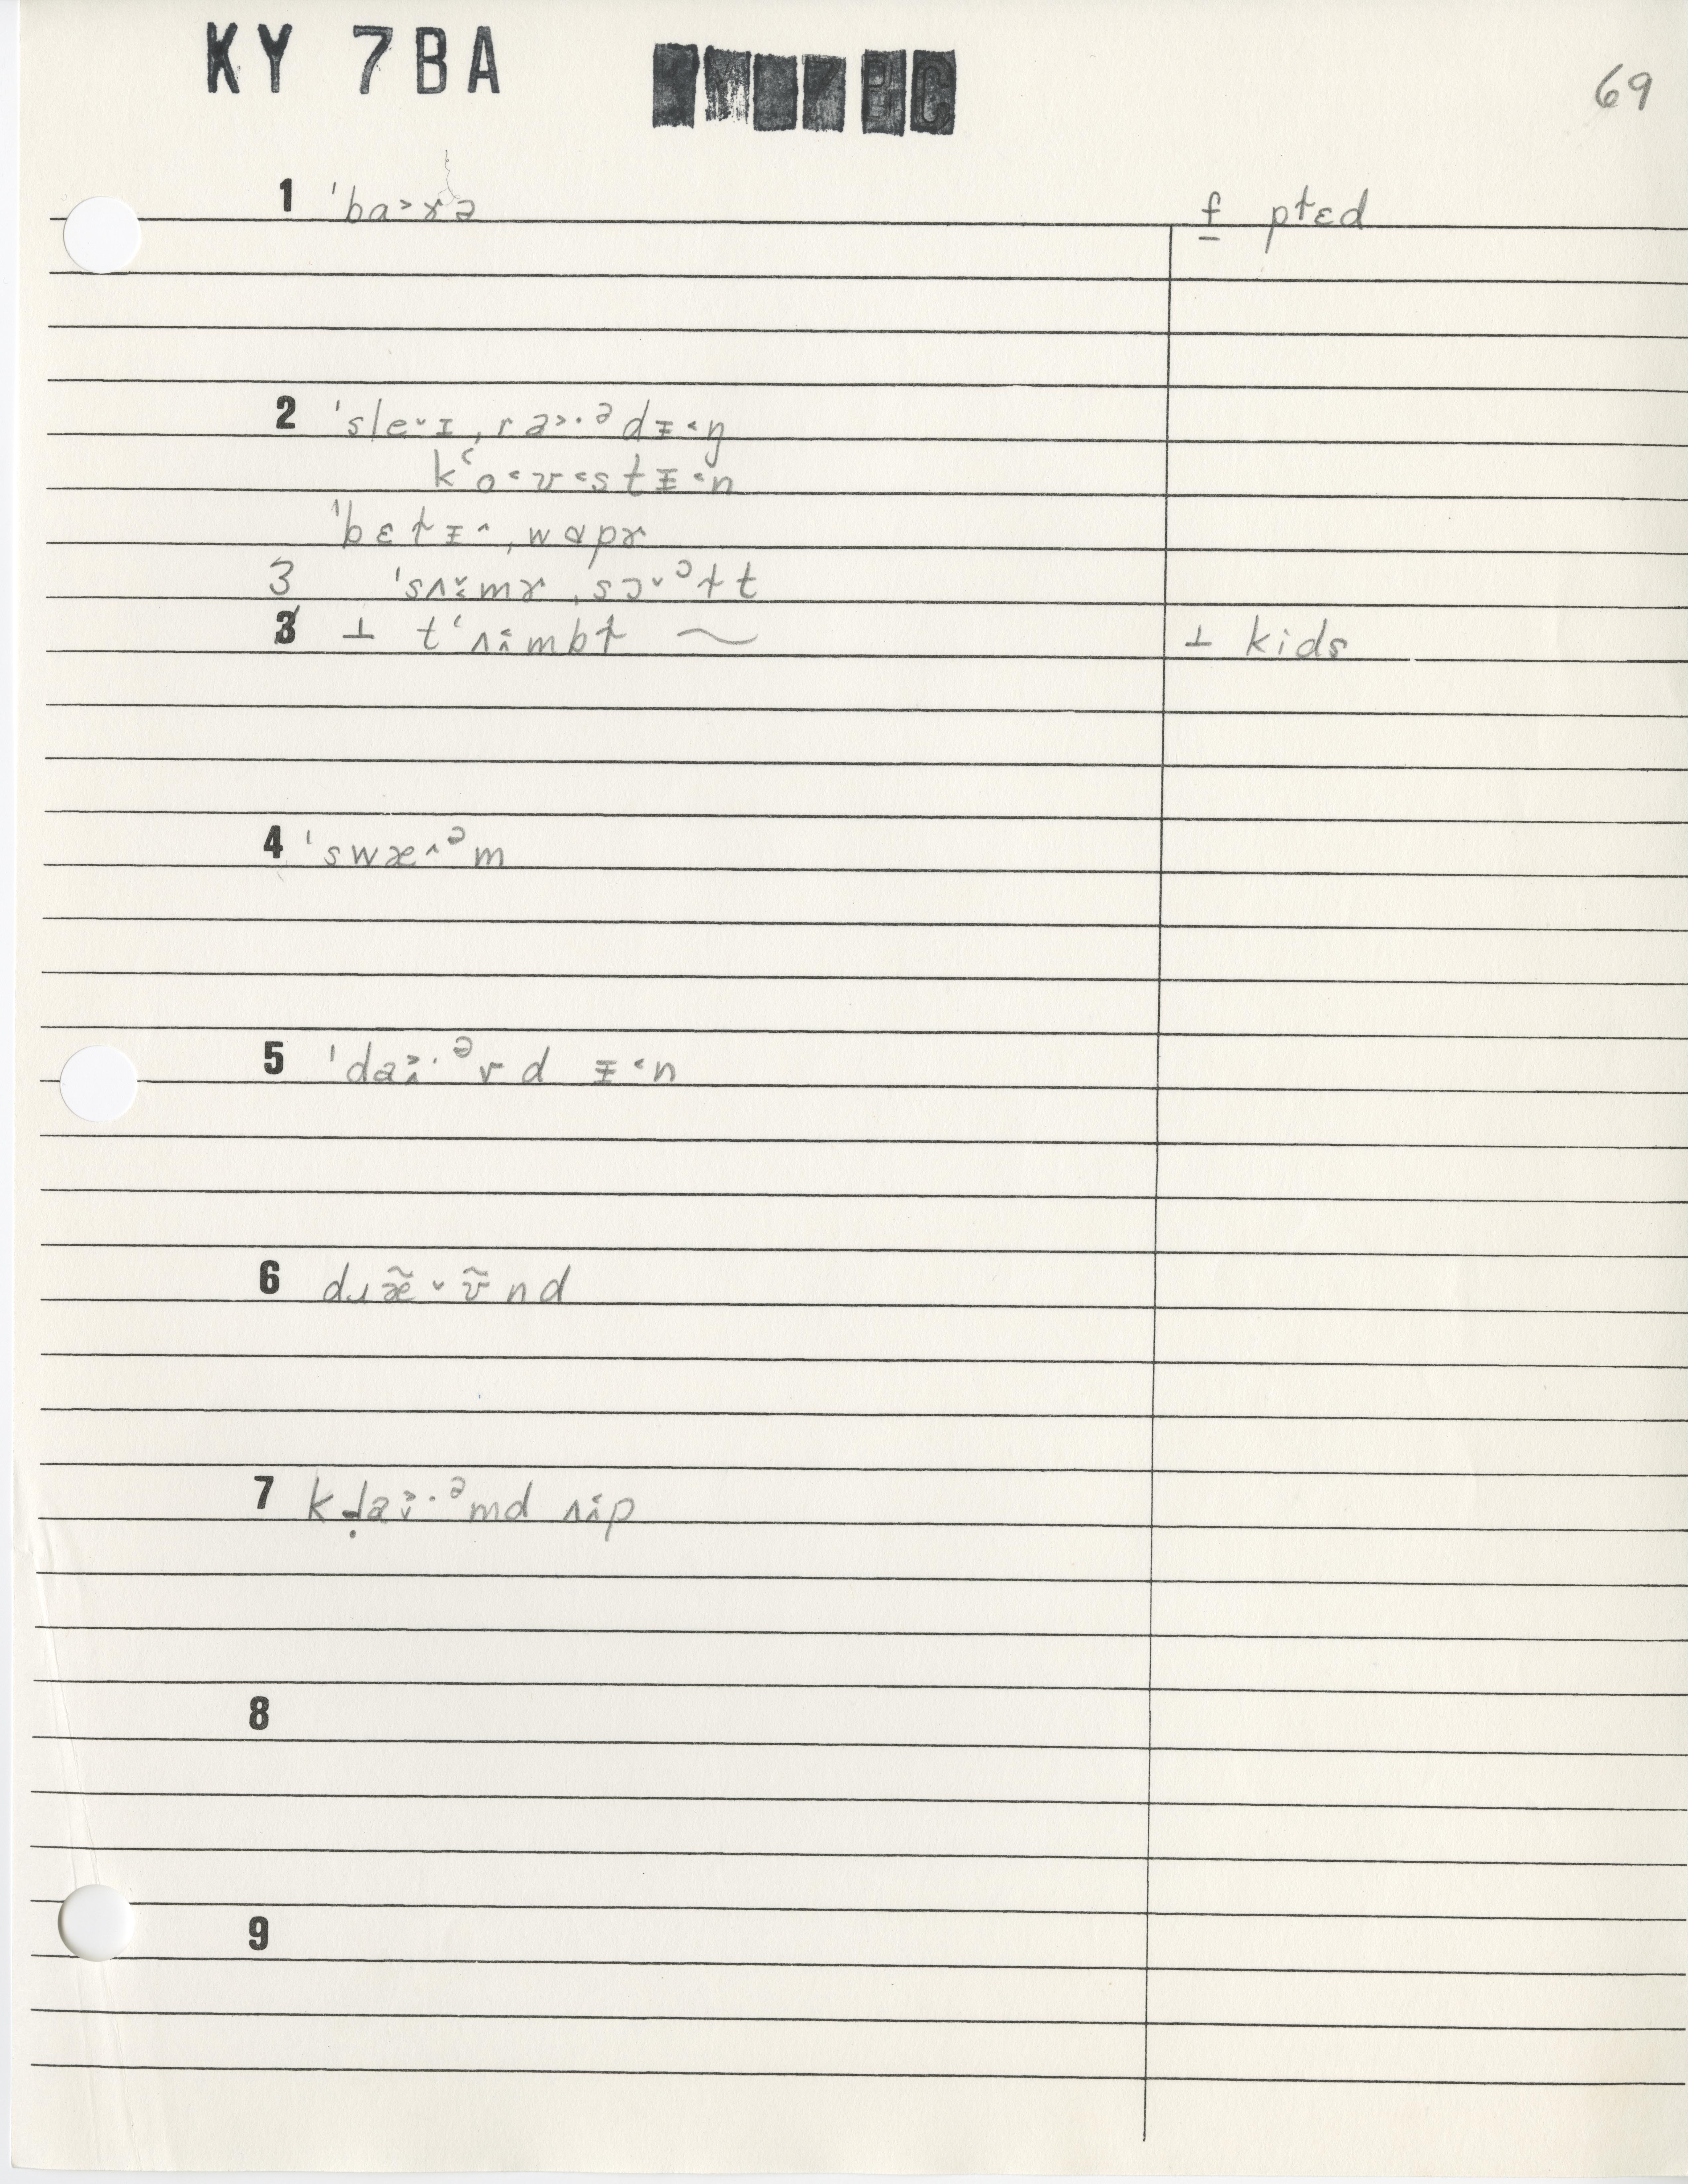 KY 7BA
69
1 ˈba˃ɤə f pɫɛd
2 ˈsle˅ɪ ˌra˃·ᵊdᵻ˂ŋ
kʻo˂ʊ˂stᵻ˂n
ˈbɛɫᵻ˄ ˌwɑpɤ
3 ˈsʌɪ̬˂mɤ ˌsɔ˅ᵓɫt
3 ⊥ tʻʌɪ̭˂mbɫ ~ ⊥ kids
4 ˈswæ˄ᵊm
5 ˈdaː˃·ᵊvd ᵻ˂n
6 dɹæ̃˅ʊ̃nd
7 kɫ̣a˃·ᵊmd ʌ˂p
8
9